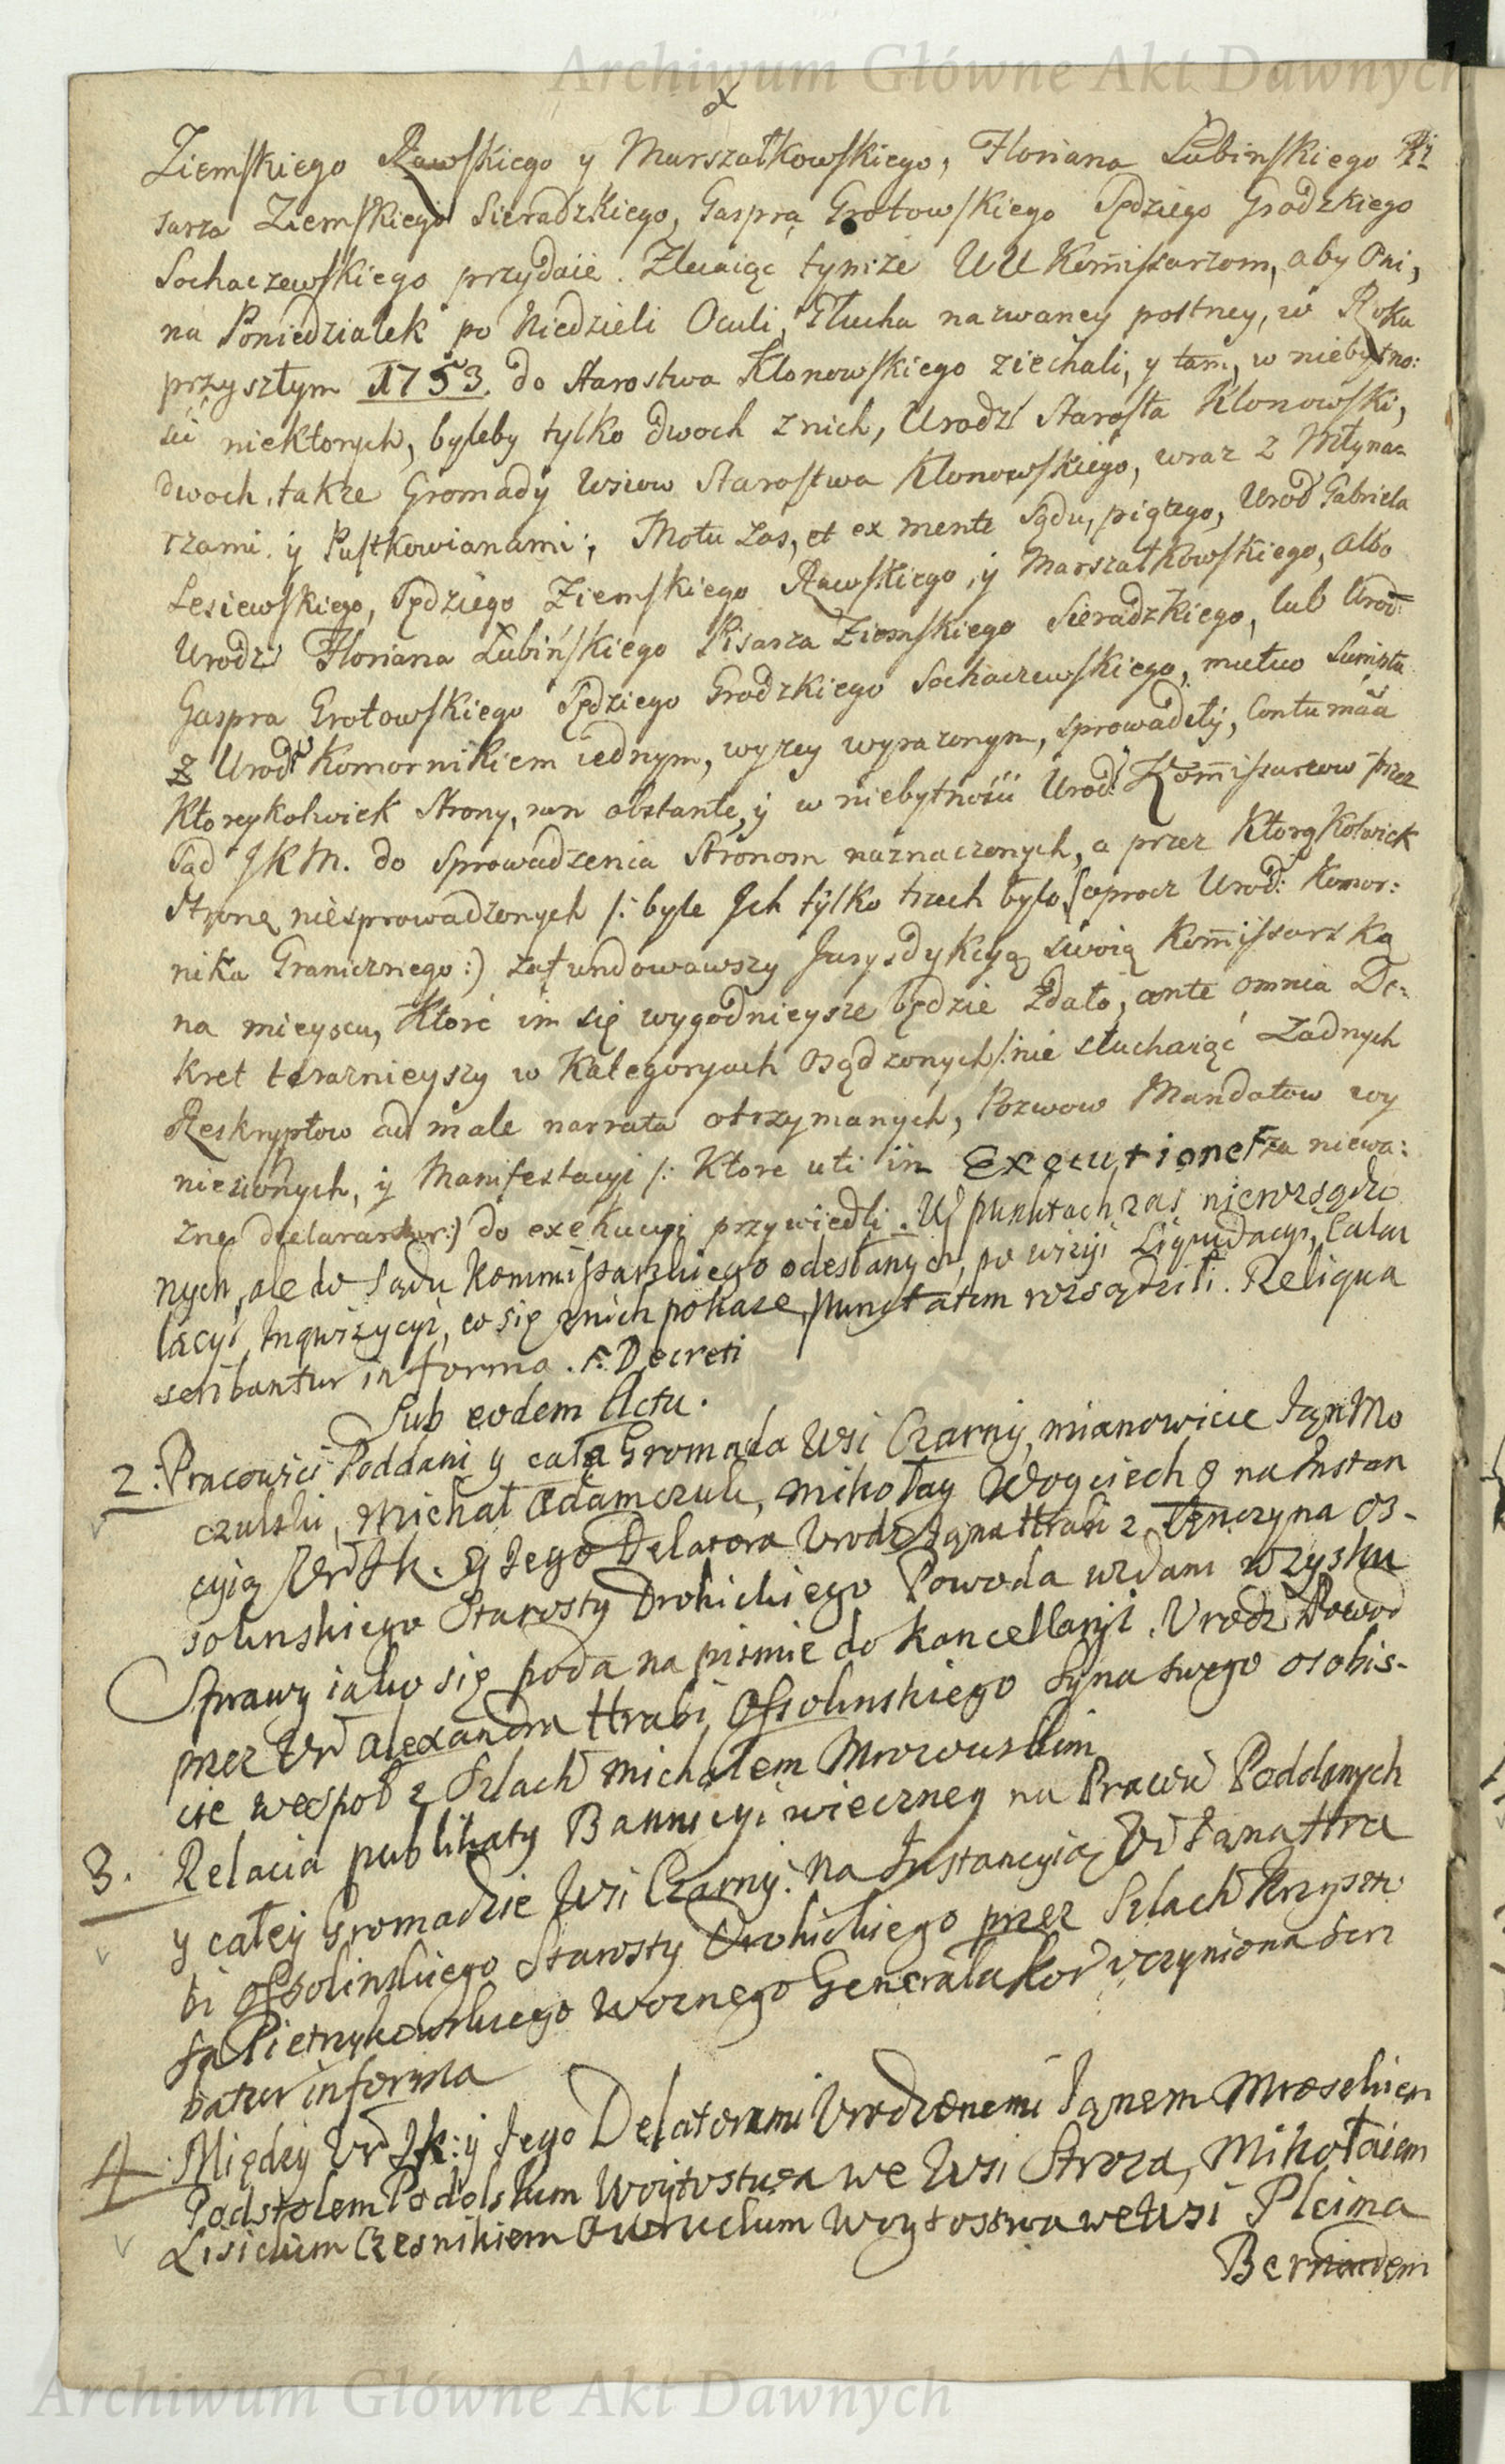 Archiwum Główne Akt Dawnych
Ziemskiego Rawskiego y Marszałkowskiego, Floriana Lubinskiego Pi
sarza Ziemskiego Sieradzkiego, Gaspra Grotowskiego Sędziego Grodzkiego
Sochaczewskiego przydaie. Zlecaiąc tymże UU Kom̄issarzom, aby Oni,
na Poniedziałek po Niedzieli Oculi, Głucha nazwaney postney, w Roku
przyszłym 1753. do Starostwa Klonowskiego ziechali, y tam, w niebytno:
sci niektorych, byleby tylko dwoch z nich, Urodz Starosta Klonowski,
dwoch, także Gromady Wsiow Starostwa Klonowskiego, wraz z Młyna=
rzami y Pustkowianami; Motu zas, et ex mente Sądu, piątego, Urod Gabriela
Lesiewskiego, Sędziego Ziemskiego Rawskiego, y Marszałkowskiego, albo
Urodz Floriana Lubińskiego Pisarza Ziemskiego Sieradzkiego, lub Urod:
Gaspra Grotowskiego Sędziego Grodzkiego Sochaczewskiego, mutuo Sumptu
z Urodz Komornikiem iednym, wyzey wyrazonym, sprowadzily, Contumacia
Ktoreykolwiek Strony, non obstante, y w niebytnosci Urod: Kom̄issarzow przez
Sąd JKM. do Sprowadzenia Stronom naznaczonych, a przez Ktorąkolwiek
Stronę niesprowadzonych /: byle Ich tylko trzech było, oprocz Urod: Komor:
nika Granicznego:) zafundowawszy Jurysdykcyą swoią Kom̄issarską
na mieyscu, Ktore im się wygodnieysze będzie zdało, ante omnia De=
kret terazniejszy w Kategoryach osądzonych /: nie słuchaiąc zadnych
Reskryptow ad male narrata otrzymanych, Pozwow Mandatow wy
niesionych, y Manifestacyi /: Ktore uti in Executione za niewa:
zne declarantur:) do exekucyi przywiedli. W punktach zas nierozsądzo
nych, ale do Sądu Kommissarskiego odesłanych, po wizyi Liquidacyi, Calcu
lacyi Inqwizycyi, co się z nich pokaze, punctatim rozsądzili. Reliqua
scribantur in forma. Decreti
Sub eodem Actu.
2. Pracowici Poddani y cała Gromada Wsi Czarny, mianowicie Jan Mo
czulski, Michał Adamczuk, Mikołay Woyciech na Instan
cyią Ur JK. y Jego Delatora Urodz Jana Hrabi z Tęnczyna Os-
solinskiego Starosty Drohickiego Powoda wzdani w zysku
Sprawy iako się poda na pismie do Kancellaryi. Urodz Powod
przez Ur Alexandra Hrabi Ossolinskiego Syna swego osobis-
cie wespoł z Szlach Michałem Mrozowskim
3. Relacia publikaty Bannicyi wieczney na Pracow Poddanych
y całey Gromadzie Wsi Czarny. Na Instancyią Ur Jana Hra
bi Ossolinskiego Starosty Drohickiego przez Szlach Krzysz
fa Pietrzykowskiego Woznego Generała Kor uczyniona Scri
batur in forma
4 Między Ur JK: y Jego Delatorami Urodzonemi Janem Mroskiem
Podstolem Podolskim Woytostwa we Wsi Stroza, Mikołaiem
Lisickim Czesnikiem Owruckim Woytostwa we Wsi Pleima
Bernardem
Archiwum Główne Akt Dawnych